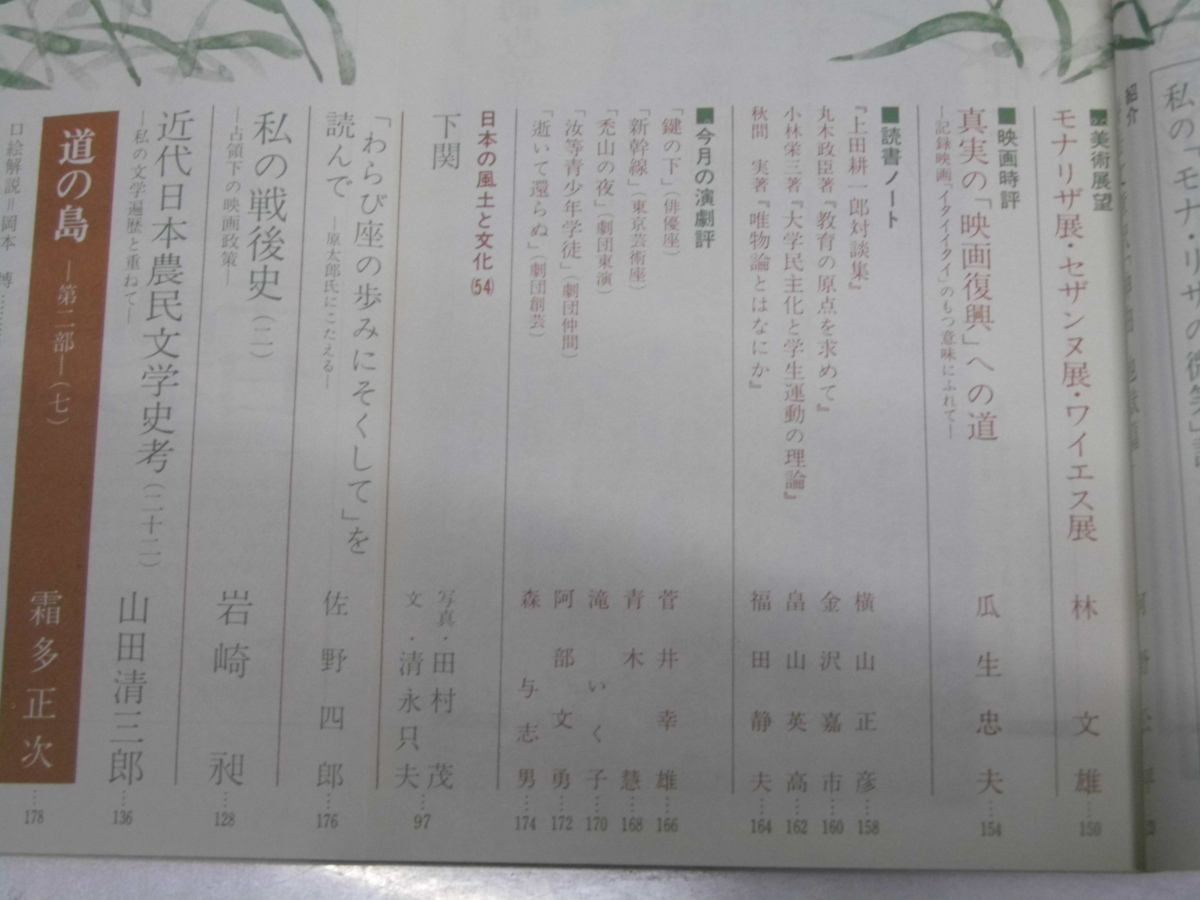 ■美術展望
モナリザ展・セザンヌ展・ワイエス展 林文雄…150
■映画時評
真実の「映画復興」への道 瓜生忠夫…154
―記録映画『イタイイタイ』のもつ意味にふれて―
■読書ノート
『上田耕一郎対談集』 横山正彦…158
丸木政臣著『教育の原点を求めて』 金沢嘉市…160
小林栄三著『大学民主化と学生運動の理論』 畠山英高…162
秋間 実著『唯物論とはなにか』 福田静夫…164
■今月の演劇評
「鍵の下」（俳優座） 菅井幸雄…166
「新幹線」（東京芸術座） 青木慧…168
「禿山の夜」（劇団東演） 滝いく子…170
「汝等青少年学徒」（劇団仲間） 阿部文勇…172
「逝いて還らぬ」（劇団創芸） 森与志男…174
日本の風土と文化(54)
下関 写真・田村茂
文・清永只夫…97
「わらび座の歩みにそくして」を
読んで ―原太郎氏にこたえる― 佐野四郎…176
私の戦後史（二） 岩崎昶…128
―占領下の映画政策―
近代日本農民文学史考（二十二） 山田清三郎…136
―私の文学遍歴と重ねて―
道の島 ―第二部―（七） 霜多正次…178
口絵解説＝岡本 博